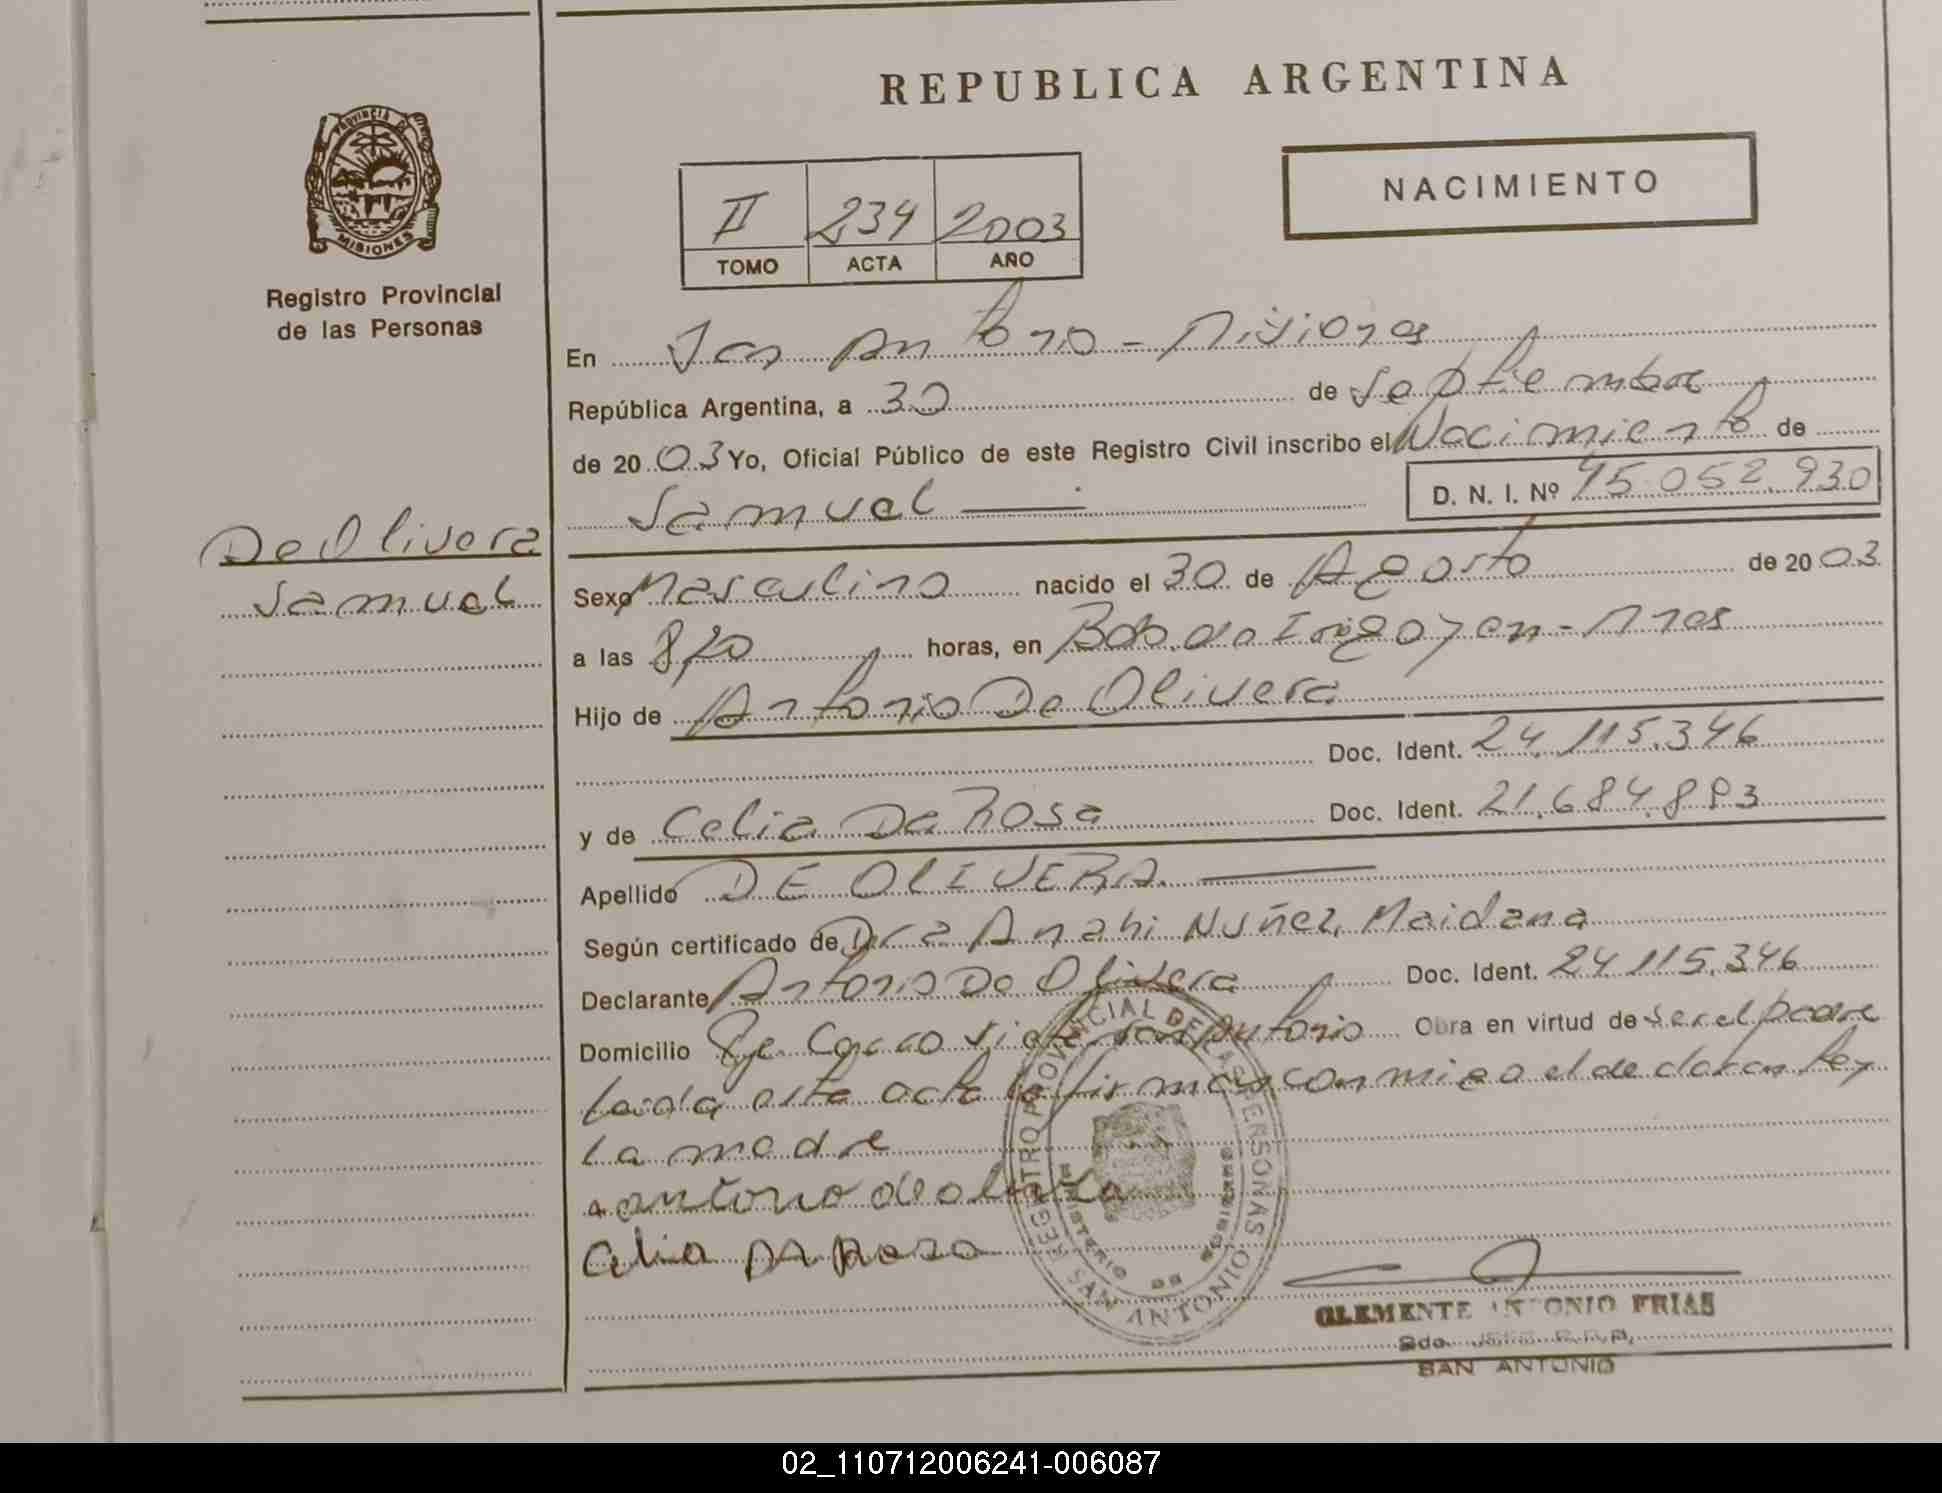 REPUBLICA ARGENTINA
PROVINCIA DE
MISIONES
Registro Provincial
de las Personas
NACIMIENTO
II 234 2003
TOMO ACTA AÑO
En San Antonio - Misiones
República Argentina, a 30 de Septiembre
de 2003 Yo, Oficial Público de este Registro Civil inscribo el Nacimiento de
Samuel
D. N. I. Nº 45.052.930
De Olivera
Samuel
Sexo Masculino nacido el 30 de Agosto de 2003
a las 8/20 horas, en Bdo. de Irigoyen - Mnes
Hijo de Antonio De Olivera
Doc. Ident. 24.115.346
y de Celia Da Rosa Doc. Ident. 21.684.893
Apellido DE OLIVERA
Según certificado de Dra Anahi Nuñez Maidana
Declarante Antonio De Olivera Doc. Ident. 24.115.346
Domicilio San Antonio Obra en virtud de ser el padre
Leida esta acta la firman conmigo el declarante y
la madre
antonio de olivera
Celia DA Rosa
REGISTRO PROVINCIAL DE LAS PERSONAS
MINISTERIO DE GOBIERNO
SAN ANTONIO
CLEMENTE ANTONIO FRIAS
SAN ANTONIO
02_110712006241-006087